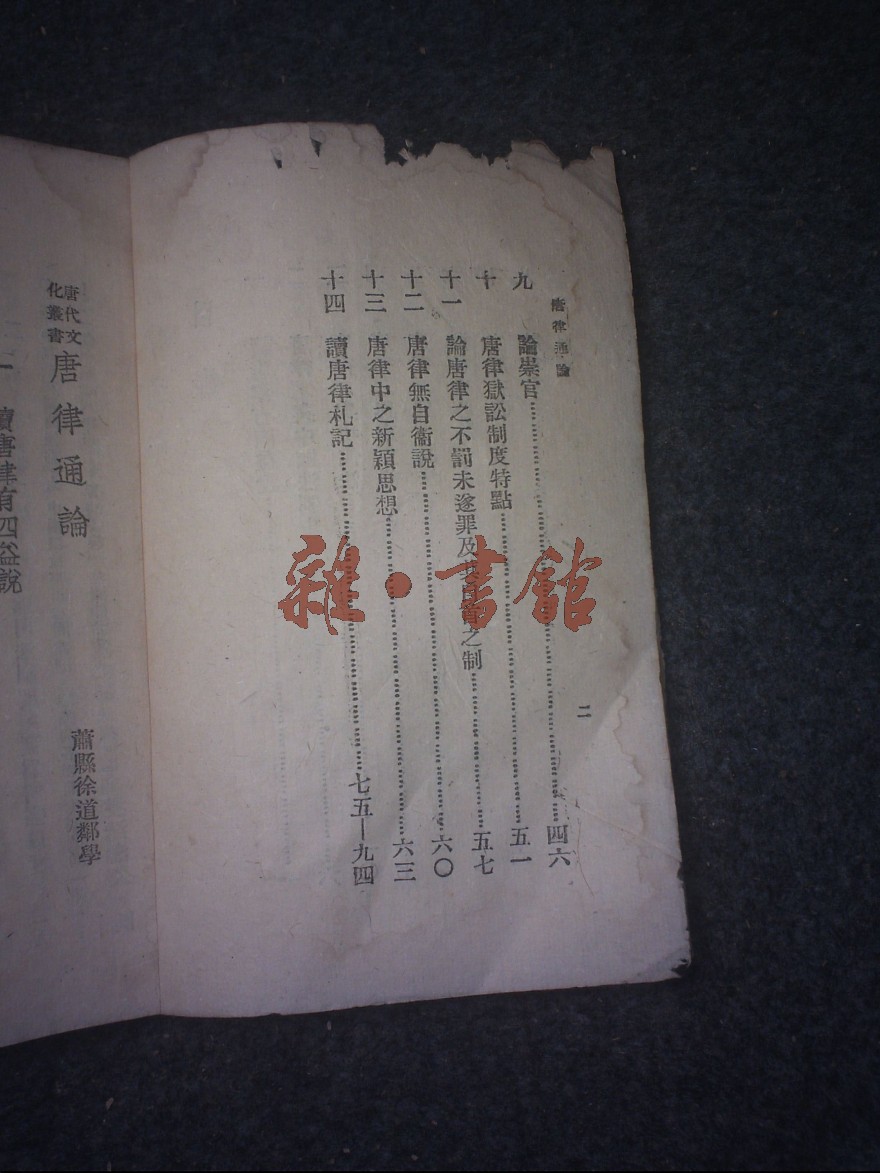 唐律通論
二
九 論崇官 四六
十 唐律獄訟制度特點 五一
十一 論唐律之不罰未遂罪及其自首之制 五七
十二 唐律無自衞說 六〇
十三 唐律中之新穎思想 六三
十四 讀唐律札記 七五—九四
唐代文化叢書 唐律通論
蕭縣徐道鄰學
一 讀唐律有四益說
雜·書館